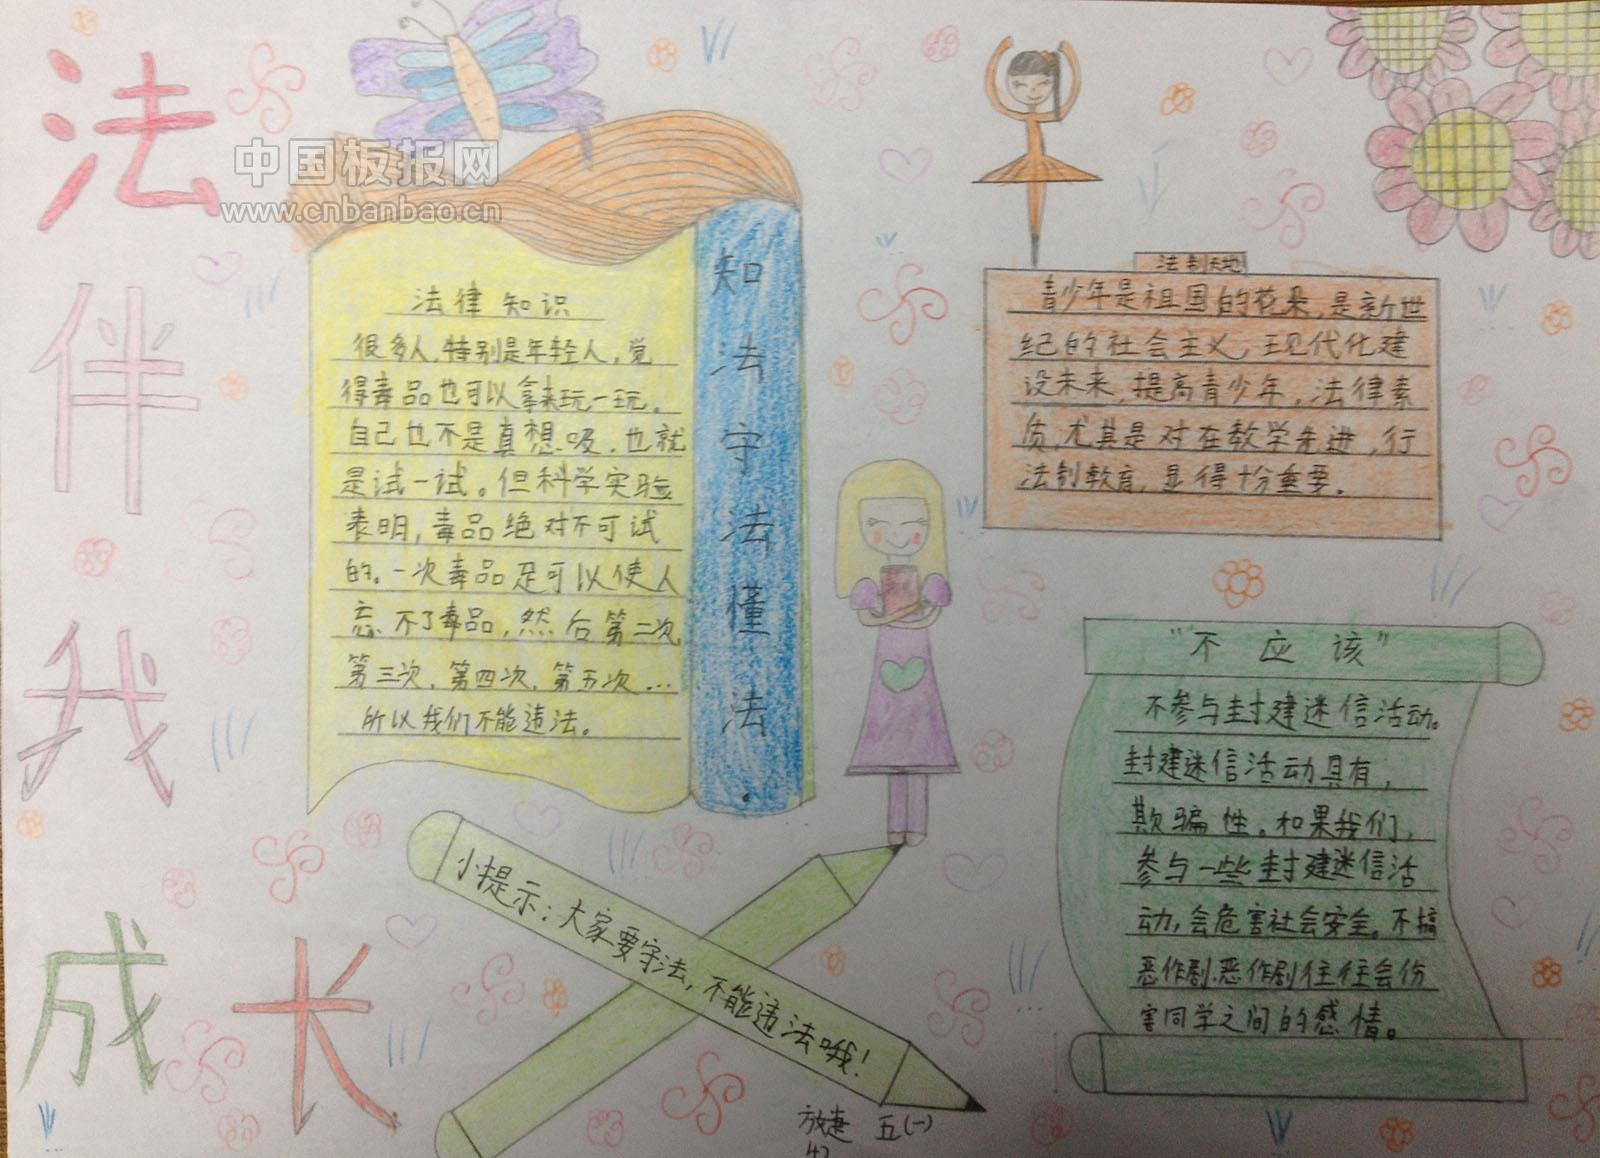 法伴我成长
中国板报网
www.cnbanbao.cn
法律知识
很多人,特别是年轻人,觉
得毒品也可以拿来玩一玩。
自己也不是真想吸,也就
是试一试。但科学实验
表明,毒品绝对不可试
的。一次毒品足可以使人
忘不了毒品,然后第二次
第三次,第四次,第五次...
所以我们不能违法。
知法守法懂法.
法制天地
青少年是祖国的花朵,是新世
纪的社会主义,现代化建
设未来,提高青少年,法律素
质,尤其是对在教学先进,行
法制教育,显得十分重要。
"不应该"
不参与封建迷信活动。
封建迷信活动具有,
欺骗性。如果我们,
参与一些封建迷信活
动,会危害社会安全。不搞
恶作剧.恶作剧往往会伤
害同学之间的感情。
小提示:大家要守法,不能违法哦!
五(一)